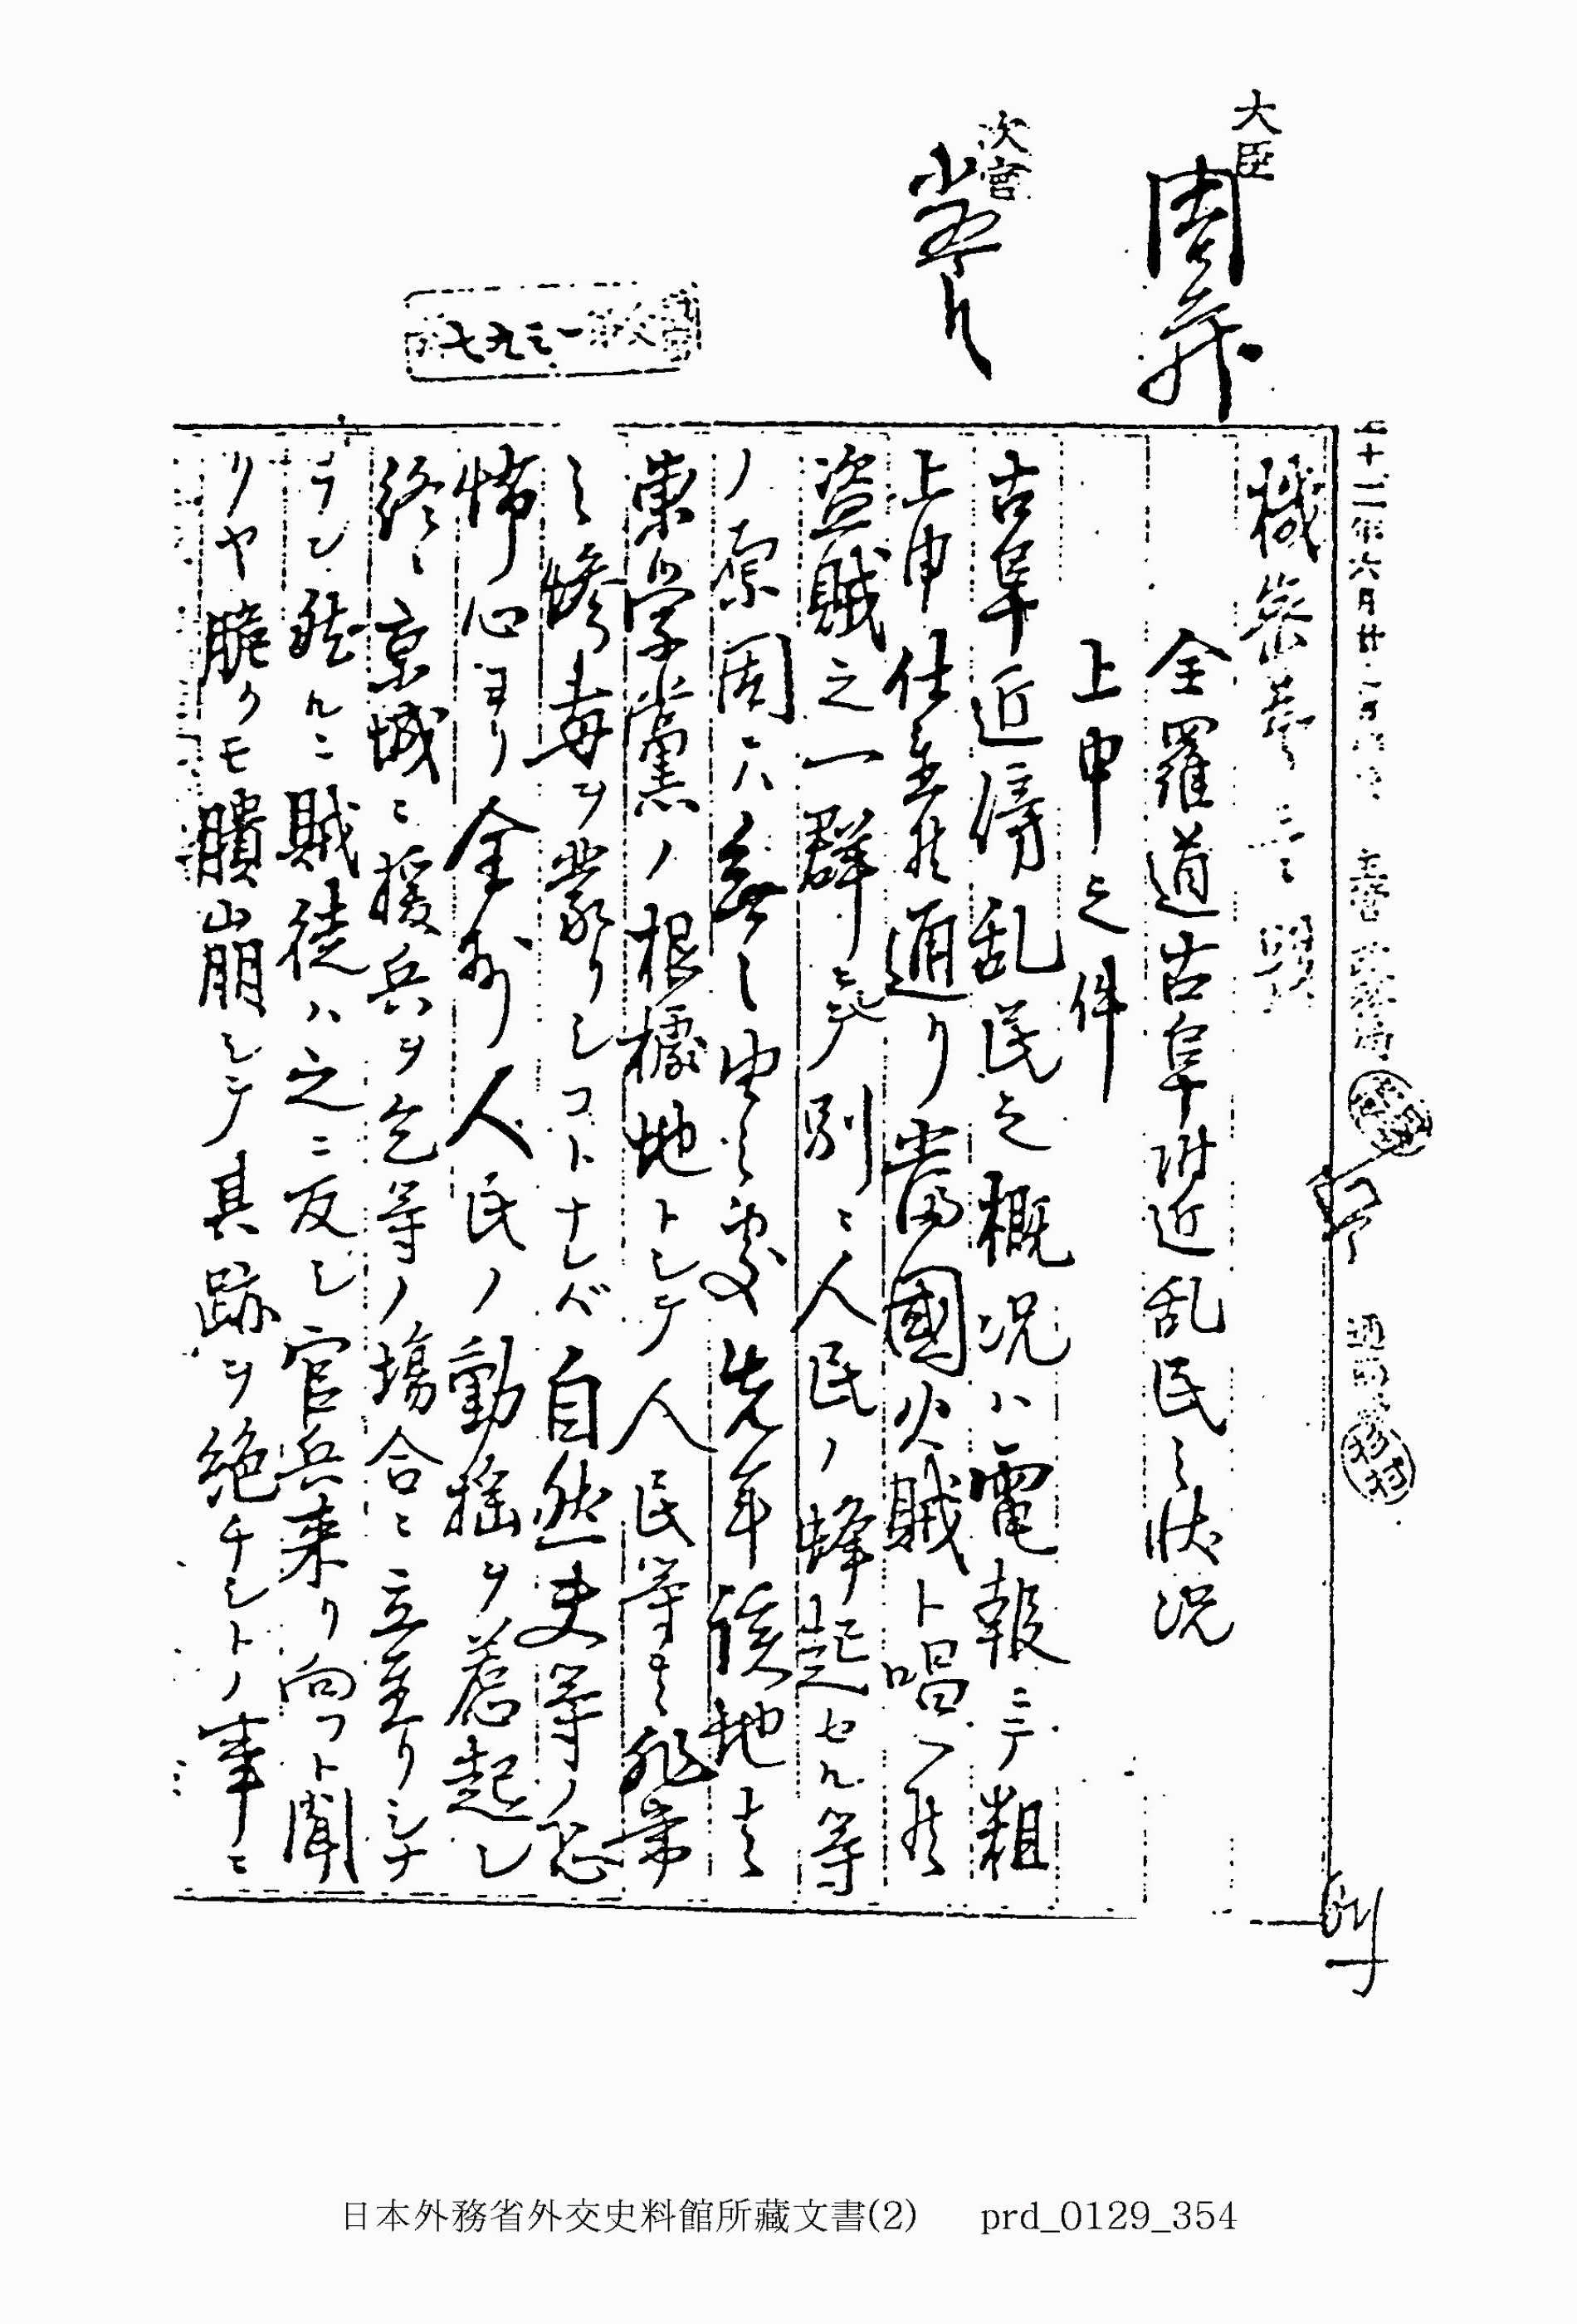 大臣
次官
機密第三三號
全羅道古阜附近乱民之状况
上申之件
古阜近傍乱民之概况ハ電報ニテ粗
上申仕置候通リ當國火賊ト唱ヘ候
盗賊之一群ニテ別ニ人民ノ蜂起セル等
ノ原因ニハ無之由之處先年該地方
東学黨ノ根據地トシテ人民等モ非常
之惨毒ヲ蒙リシコトナレバ自然吏等ノ恐
怖心ヨリ全州人民ノ動揺ヲ惹起シ
終ニ京城ニ援兵ヲ乞等ノ場合ニ立至リシナ
ラン然ルニ賊徒ハ之ニ反シ官兵来リ向フト聞
クヤ脆クモ膭崩シテ其跡ヲ絶チシトノ事ニ
日本外務省外交史料館所藏文書(2) prd_0129_354